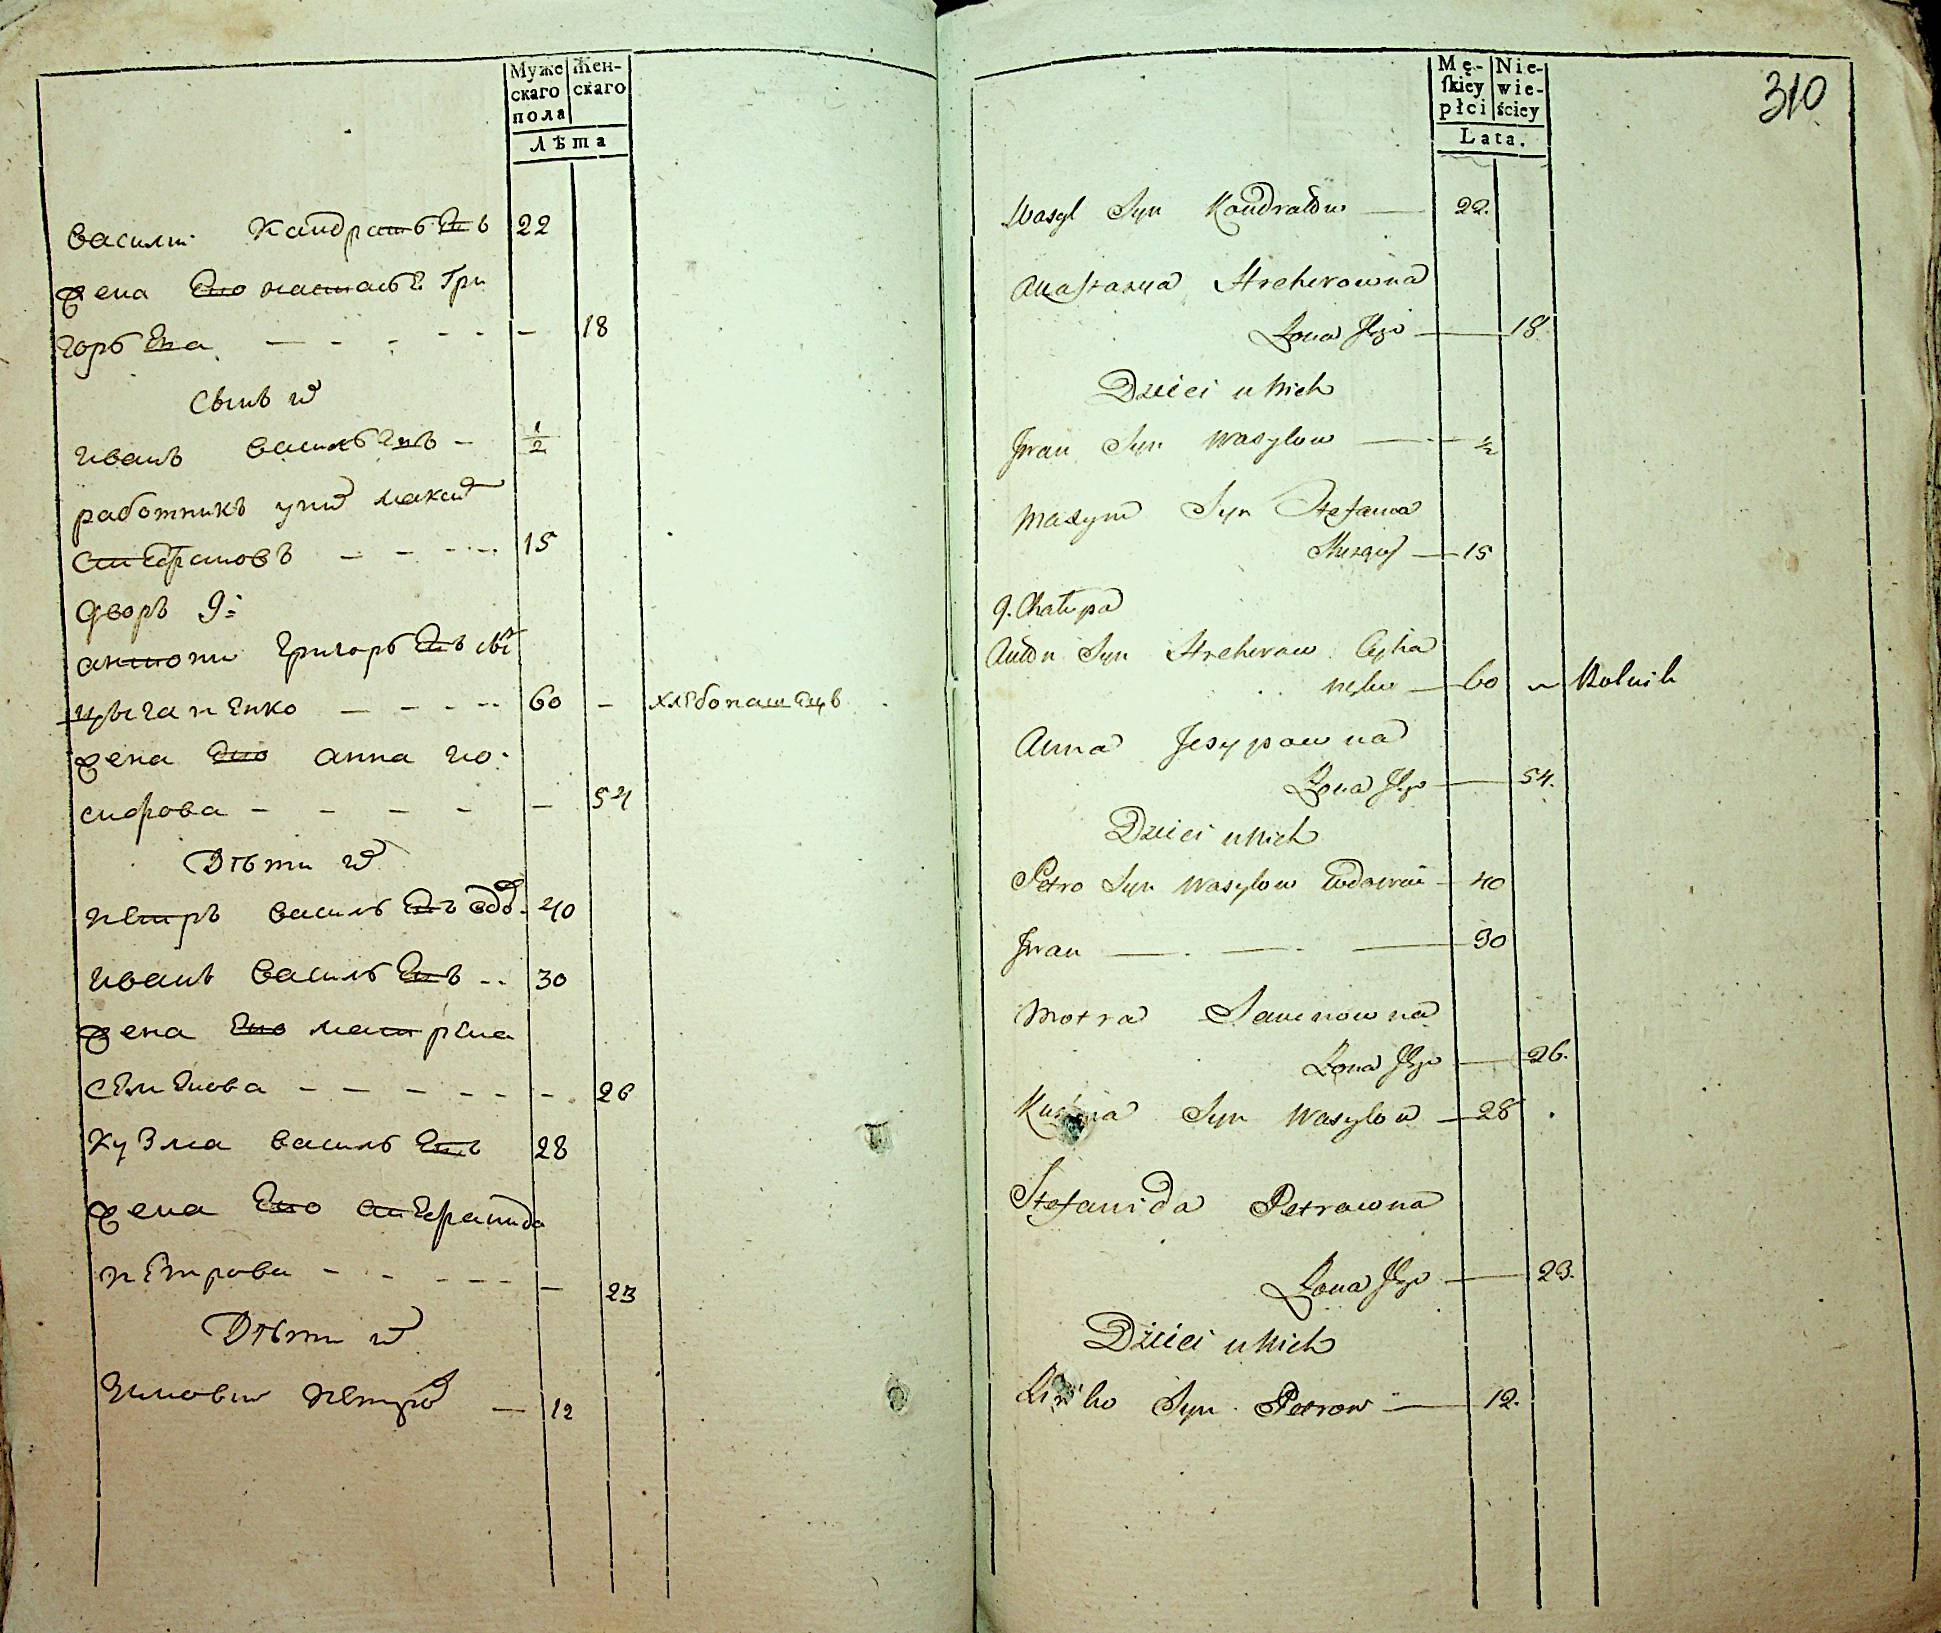 Муже
скаго
пола
Жен-
скаго
Лѣта
василий Кандратьевъ 22
жена Его настасьѣ Гри
горьева — 18
Сынъ их
иванъ васильевъ — 1/2
работникъ у них максим
степановъ — 15
дворъ 9й
антони григорьевъ сын
цыганенко — 60 — хлебопашецъ
жена Его анна ио
сифова — 54
Дѣти их
петръ васильевъ вдов 40
иванъ васильевъ 30
жена Его матрена
семенова — 26
Кузма васильевъ 28
жена Его степанида
петрова — 23
Дѣти их
петров — 12
Mę-
skiey
płci
Nie-
wie-
ściey
Lata.
310
Wasyl Syn Kondratow — 22.
Anastazya Hreherowna
Zona Jego — 18.
Dzieci u Nich
Iwan Syn Wasylow — 1/2
Maxym Syn Stefanow
Służący — 15
9. Chałupa
Anton Syn Hreherow Cyha
nenko — 60 Rolnik
Anna Jesypowna
Zona Jego — 54.
Dzieci u Nich
Petro Syn Wasylow Wdowiec — 40
Iwan — 30
Motra Samenowna
Zona Jego — 26.
Kuzma Syn Wasylow — 28
Stefanida Petrowna
Zona Jego — 23.
Dzieci u Nich
Syn Petrow — 12.